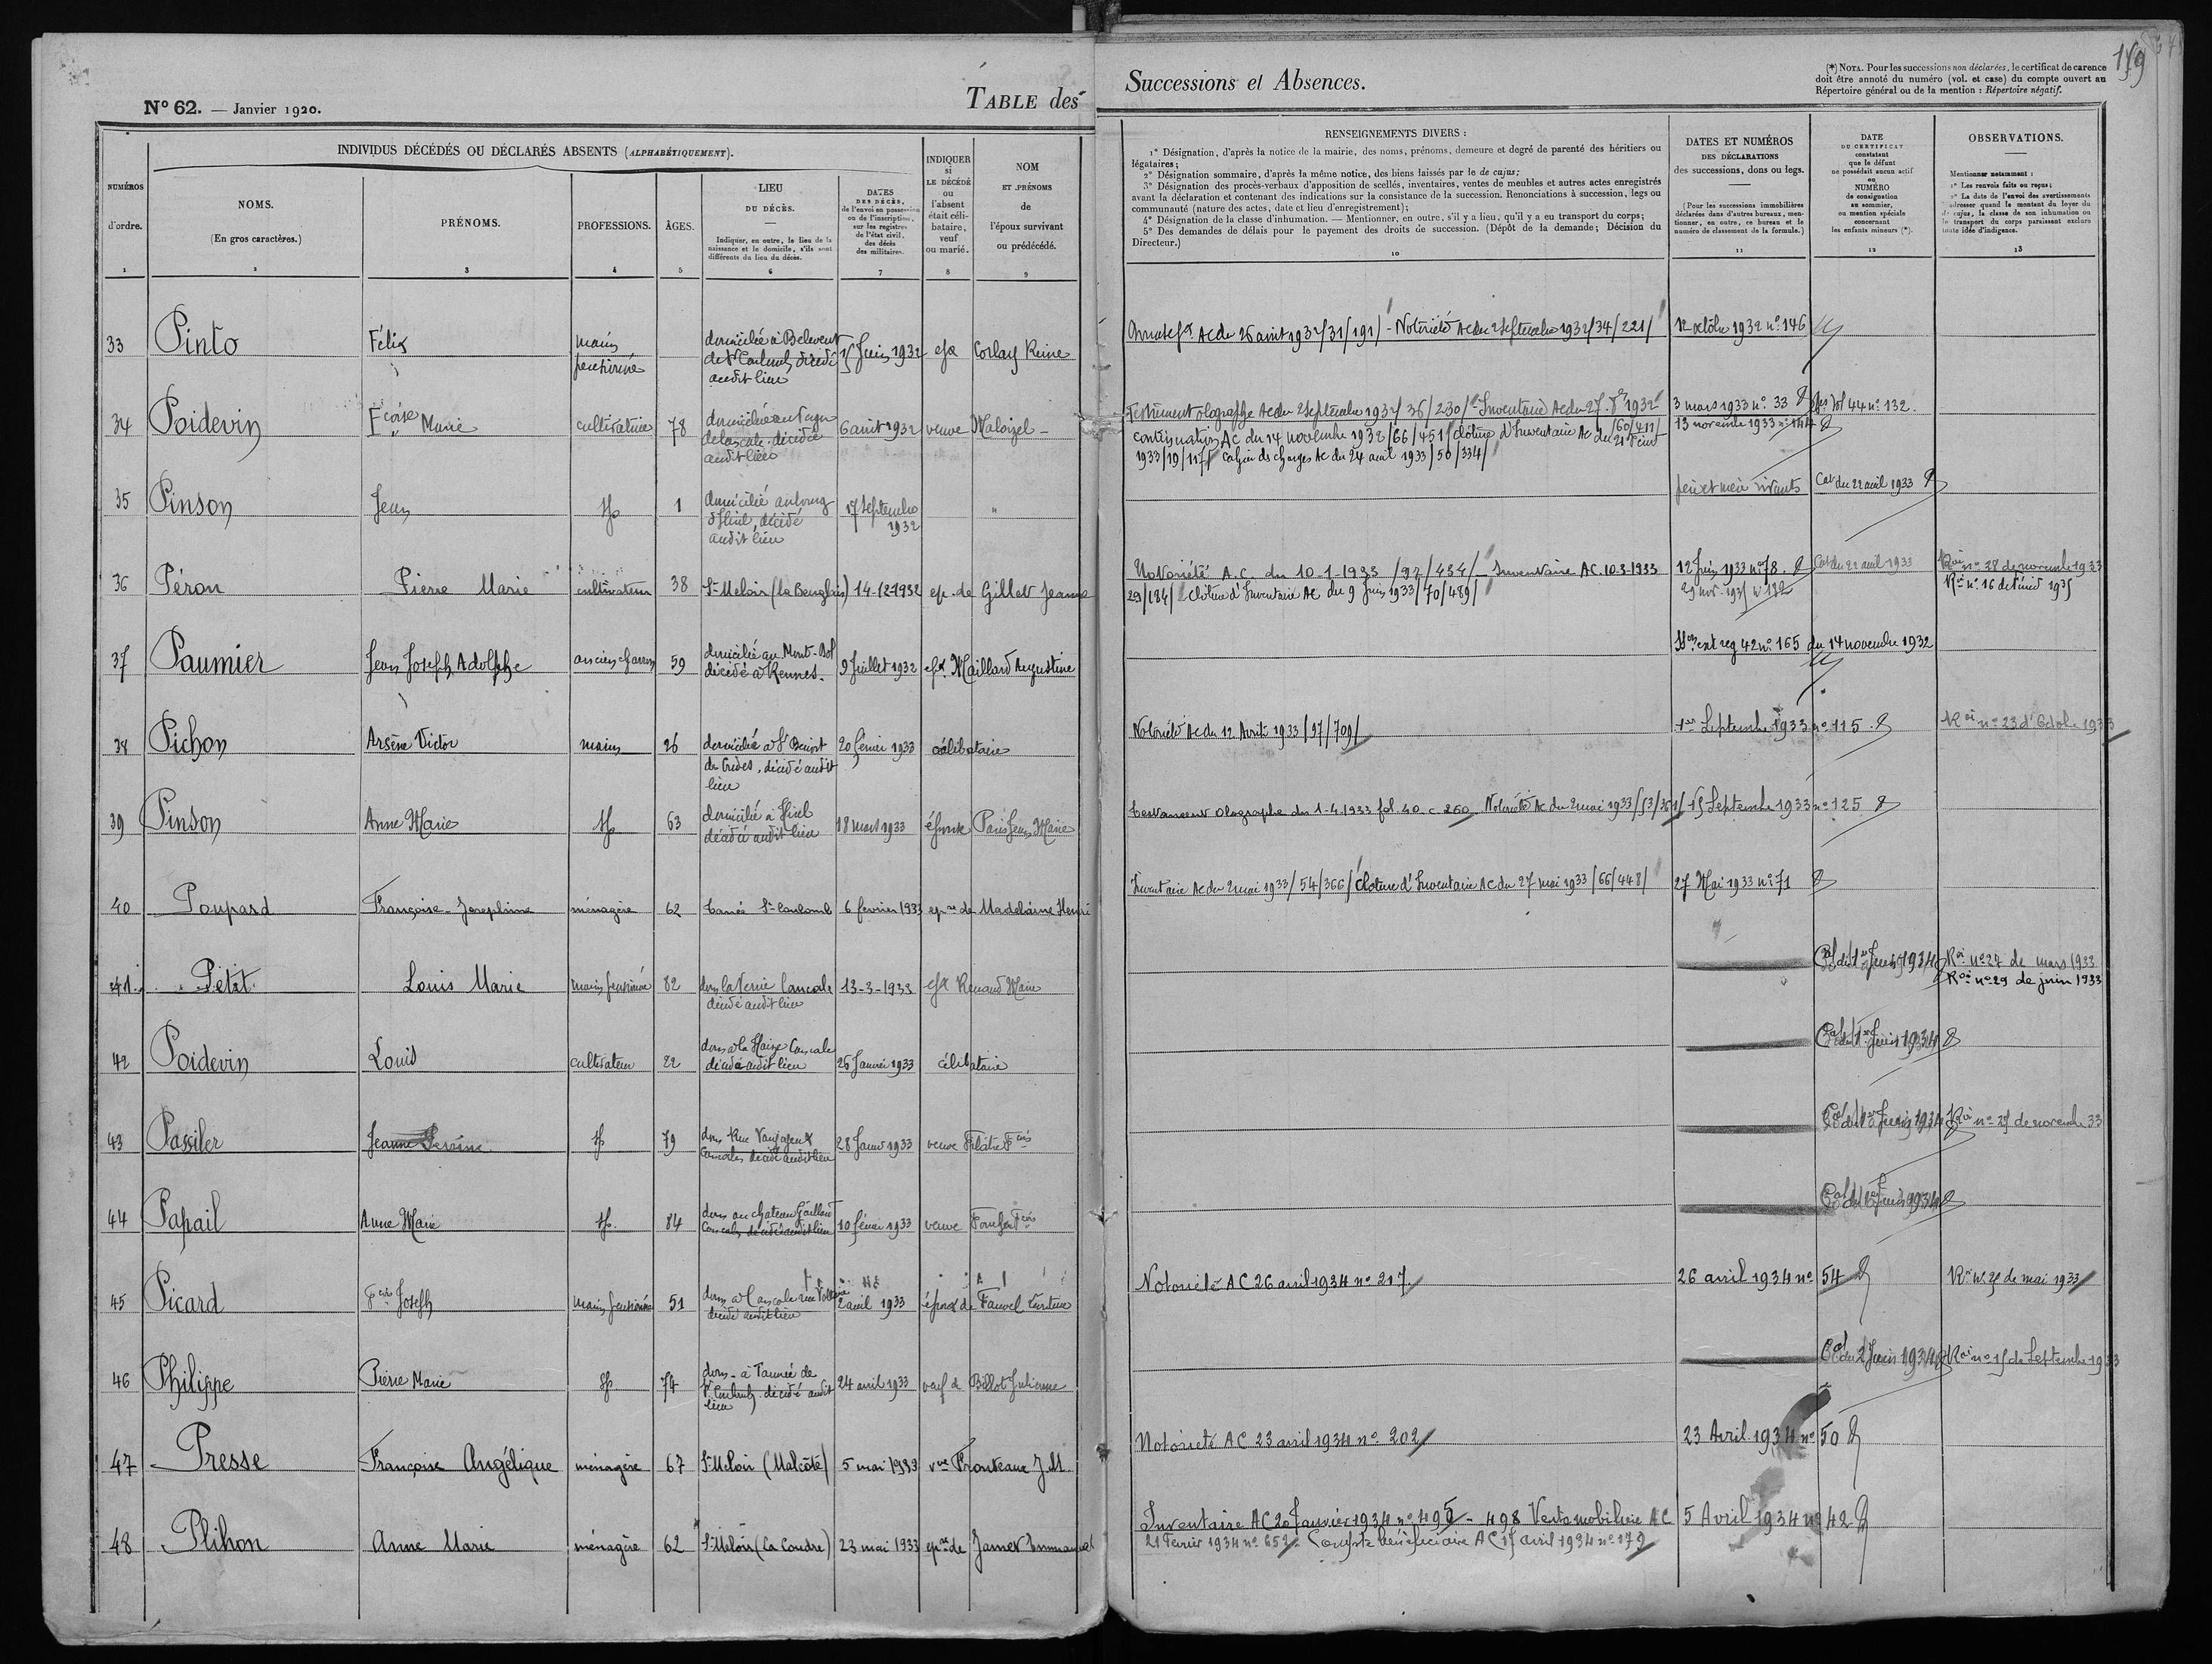 179
N° 62. — Janvier 1920.
TABLE des
Successions et Absences.
(*) NOTA. Pour les successions non déclarées, le certificat de carence
doit être annoté du numéro (vol. et case) du compte ouvert au
Répertoire général ou de la mention : Répertoire négatif.
NUMÉROS
d'ordre.
1
INDIVIDUS DÉCÉDÉS OU DÉCLARÉS ABSENTS (ALPHABÉTIQUEMENT).
NOMS.
(En gros caractères.)
2
PRÉNOMS.
3
PROFESSIONS.
4
ÂGES.
5
LIEU
DU DÉCÈS.
Indiquer, en outre, le lieu de la
naissance et le domicile, s'ils sont
différents du lieu du décès.
6
DATES
DES DÉCÈS,
de l'envoi en possession
ou de l'inscription,
sur les registres
de l'état civil,
des décès
des militaires.
7
INDIQUER
si
LE DÉCÉDÉ
ou
l'absent
était céli-
bataire,
veuf
ou marié.
8
NOM
ET PRÉNOMS
de
l'époux survivant
ou prédécédé.
9
RENSEIGNEMENTS DIVERS :
1° Désignation, d'après la notice de la mairie, des noms, prénoms, demeure et degré de parenté des héritiers ou
légataires;
2° Désignation sommaire, d'après la même notice, des biens laissés par le de cujus;
3° Désignation des procès-verbaux d'apposition de scellés, inventaires, ventes de meubles et autres actes enregistrés
avant la déclaration et contenant des indications sur la consistance de la succession. Renonciations à succession, legs ou
communauté (nature des actes, date et lieu d'enregistrement);
4° Désignation de la classe d'inhumation. — Mentionner, en outre, s'il y a lieu, qu'il y a eu transport du corps;
5° Des demandes de délais pour le payement des droits de succession. (Dépôt de la demande; Décision du
Directeur.)
10
DATES ET NUMÉROS
DES DÉCLARATIONS
des successions, dons ou legs.
(Pour les successions immobilières
déclarées dans d'autres bureaux, men-
tionner, en outre, ce bureau et le
numéro de classement de la formule.)
11
DATE
DU CERTIFICAT
constatant
que le défunt
ne possédait aucun actif
ou
NUMÉRO
de consignation
au sommier,
ou mention spéciale
concernant
les enfants mineurs (*).
12
OBSERVATIONS.
Mentionner notamment :
1° Les renvois faits ou reçus;
2° La date de l'envoi des avertissements
à adresser quand le montant du loyer du
de cujus, la classe de son inhumation ou
le transport du corps paraissent exclure
toute idée d'indigence.
13
33 Pinto Félix marin pensionné domicilié à Belevent de St Coulomb, décédé audit lieu 15 Juin 1932 epx Corlay Reine
Ac du 26 août 1932/31/191/ - Notoriété Ac du 2 septembre 1932/34/221/ 12 octobre 1932 n° 146
34 Poidevin Fcoise Marie cultivatrice 78 décédée audit lieu 6 août 1932 veuve Maloizel -
Testament olographe Ac du 2 septembre 1932/36/230/ Inventaire Ac du 27 8bre 1932 /60/411/ 3 mars 1933 n° 33 vol 44 n° 132.
continuation Ac du 14 novembre 1932/66/451/ clôture d'Inventaire Ac du 21 févr 13 novembre 1933 n° 144
1933/19/117/ cahier des charges Ac du 24 août 1933/50/334/
35 Pinson Jean sp 1 domicilié au bourg d'Hirel, décédé audit lieu 17 septembre 1932 "
père et mère vivants Cat du 22 avril 1933
36 Péron Pierre Marie cultivateur 38 St-Meloir (la Beuglais) 14-12-1932 ep. de Gillet Jeanne
Notoriété A.C. du 10-1-1933 /92/434/ - Inventaire AC. 10.3-1933 12 Juin 1933 n° 78. Cat du 22 avril 1933 Roi n° 28 de novembre 1933
29/184/ clôture d'Inventaire Ac du 9 Juin 1933/70/489/ 29 nov. 1935 n° 132 Roi n° 16 de févier 1935
37 Paumier Jean Joseph Adolphe ancien charron 59 domicilié au Mont-Dol décédé à Rennes. 9 Juillet 1932 epx. Maillard Augustine
ext reg 42 n° 165 du 14 novembre 1932
38 Pichon Arsène Victor marin 26 domicilié à St Benoit des Ondes, décédé audit lieu 20 février 1933 célibataire
Notoriété Ac du 12 Avril 1933/97/709/ 1er Septembre 1933 n° 115. Roi n° 23 d'Octobre 1933
39 Pinson Anne Marie sp 63 domicilié à Hirel décédée audit lieu 18 mars 1933 épouse Paris Jean Marie
Testament olographe du 1-4-1933 fol. 40. c. 260. Notoriété Ac du 2 mai 1933/53/361/ 15 Septembre 1933 n° 125
40 Poupard Françoise-Josephine ménagère 62 Tanée St-Coulomb 6 février 1933 epse de Madelaine Henri
Inventaire Ac du 2 mai 1933/54/366/ Clôture d'Inventaire Ac du 27 mai 1933/66/448/ 27 Mai 1933 n° 71
41 Petit Louis Marie marin pensionné 82 Cancale décédé audit lieu 13-3-1933 epx Renaud Marie
Cat du 1er Juin 1934 Roi n° 27 de mars 1933
Roi n° 29 de juin 1933
42 Poidevin Louis cultivateur 22 dom à la Haize Cancale décédé audit lieu 26 Janvier 1933 célibataire
Cat du 1er Juin 1934
43 Passiler Jeanne sp 79 dom Rue Vaujoyeux Cancale, décédé audit lieu 28 Janvr 1933 veuve Filâtre Fcois
Cat du 1er Juin 1934 Roi n° 25 de novembre 33
44 Papail Anne Marie sp. 84 dom au chateau Gaillard Cancale, décédé audit lieu 10 févier 1933 veuve Fcois
Cat du 1er Juin 1934
45 Picard Fcois Joseph marin pensionné 51 dom à Cancale rue décédé audit lieu 2 avril 1933 époux de Fauvel
Notoriété AC 26 avril 1934 n° 217. 26 avril 1934 n° 54 Roi n° 25 de mai 1933
46 Philippe Pierre Marie sp 74 dom. à Tannée de St Coulomb, décédé audit lieu 24 avril 1933 veuf d Billot Julienne
Cat du 2 Juin 1934 Roi n° 15 de Septembre 1933
47 Presse Françoise Angélique ménagère 67 St-Meloir (Malcôté) 5 mai 1933 vve Fronteaux J.M.
Notoriété AC 23 avril 1934 n° 202 23 Avril 1934 n° 50
48 Plihon Anne Marie ménagère 62 St-Meloir (La Coudre) 23 mai 1933 epse de Jamet Emmanuel
Inventaire AC 20 Janvier 1934 n° 495 - 498 Vente mobilière AC 5 Avril 1934 n° 42
21 Février 1934 n° 652. Compte bénéficiaire AC 15 avril 1934 n° 179